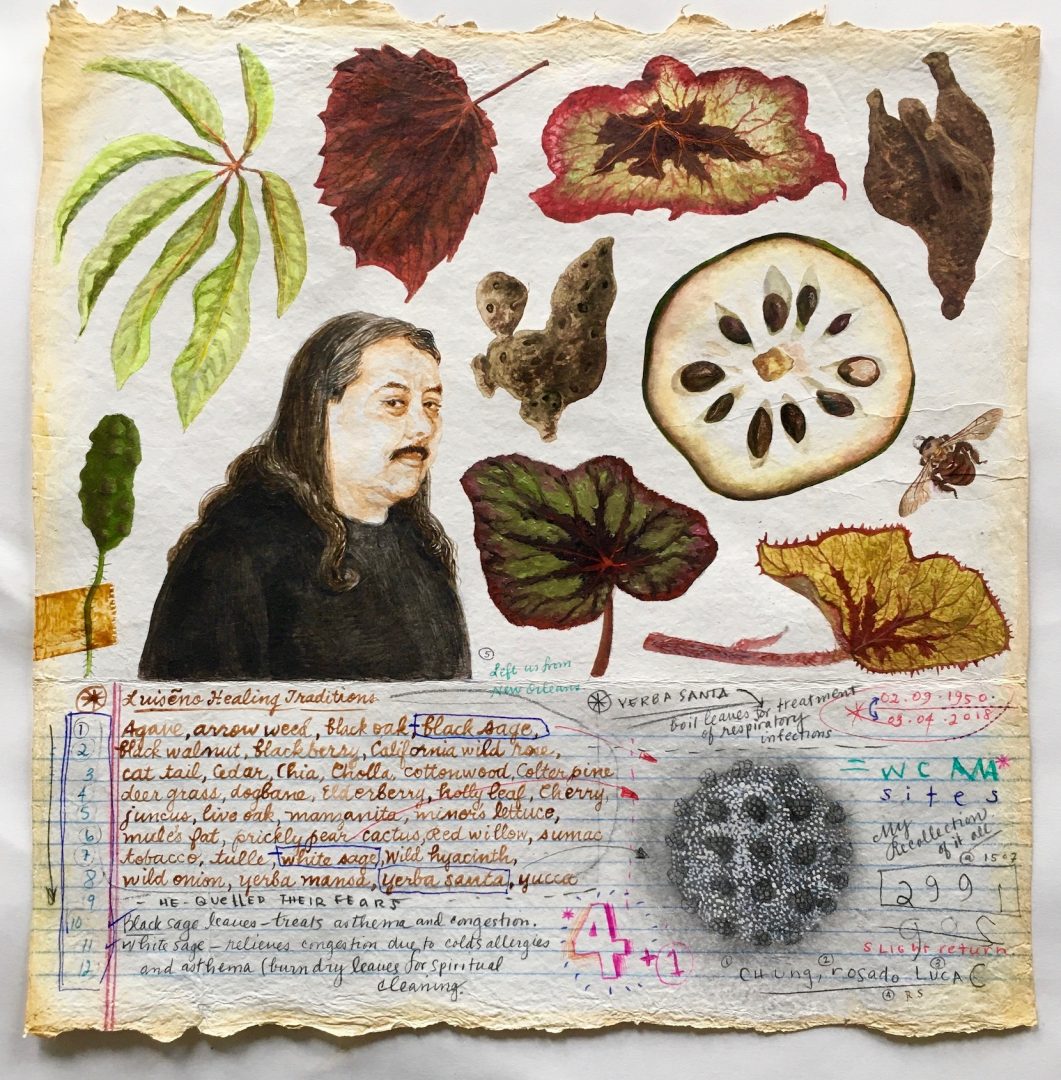 ⑤
Left us from
New Orleans
Luisẽno Healing Traditions
① Agave, arrow weed, black oak, black sage,
2 black walnut, blackberry, California wild rose,
3 cat tail, Cedar, Chia, Cholla, cottonwood, Colter pine
4 deer grass, dogbane, Elderberry, holly leaf, Cherry,
5 juncus, live oak, manzanita, minor's lettuce,
⑥ mule's fat, prickly pear cactus, Red willow, sumac
7 tobacco, tulle, white sage, wild hyacinth,
8 wild onion, yerba mansa, yerba santa, yucca
9 - HE QUELLED THEIR FEARS
10 Black sage leaves - treats asthema and congestion.
11 White sage - relieves congestion due to colds allergies
12 and asthema (burn dry leaves for spiritual
cleaning.
YERBA SANTA
boil leaves for treatment
of respiratory
infections
02.09.1950.
03.04.2018
= WCAAA*
sites
My
Recollection
of it all
@ 1507
2991
Slight return.
*4+1
① ② ③
CHUNG, rosado LUCA C
④ RS